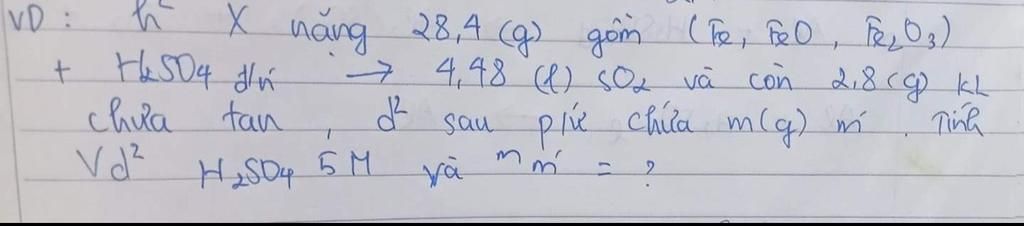 VD : h² X nặng 28,4 (g) gồm (Fe, FeO, Fe₂O₃)
+ H₂SO₄ đ/ń → 4,48 (l) SO₂ và còn 2,8 (g) KL
chưa tan, d² sau p/ứ chứa m(g) ḿ. Tính
Vd² H₂SO₄ 5M và m ḿ = ?